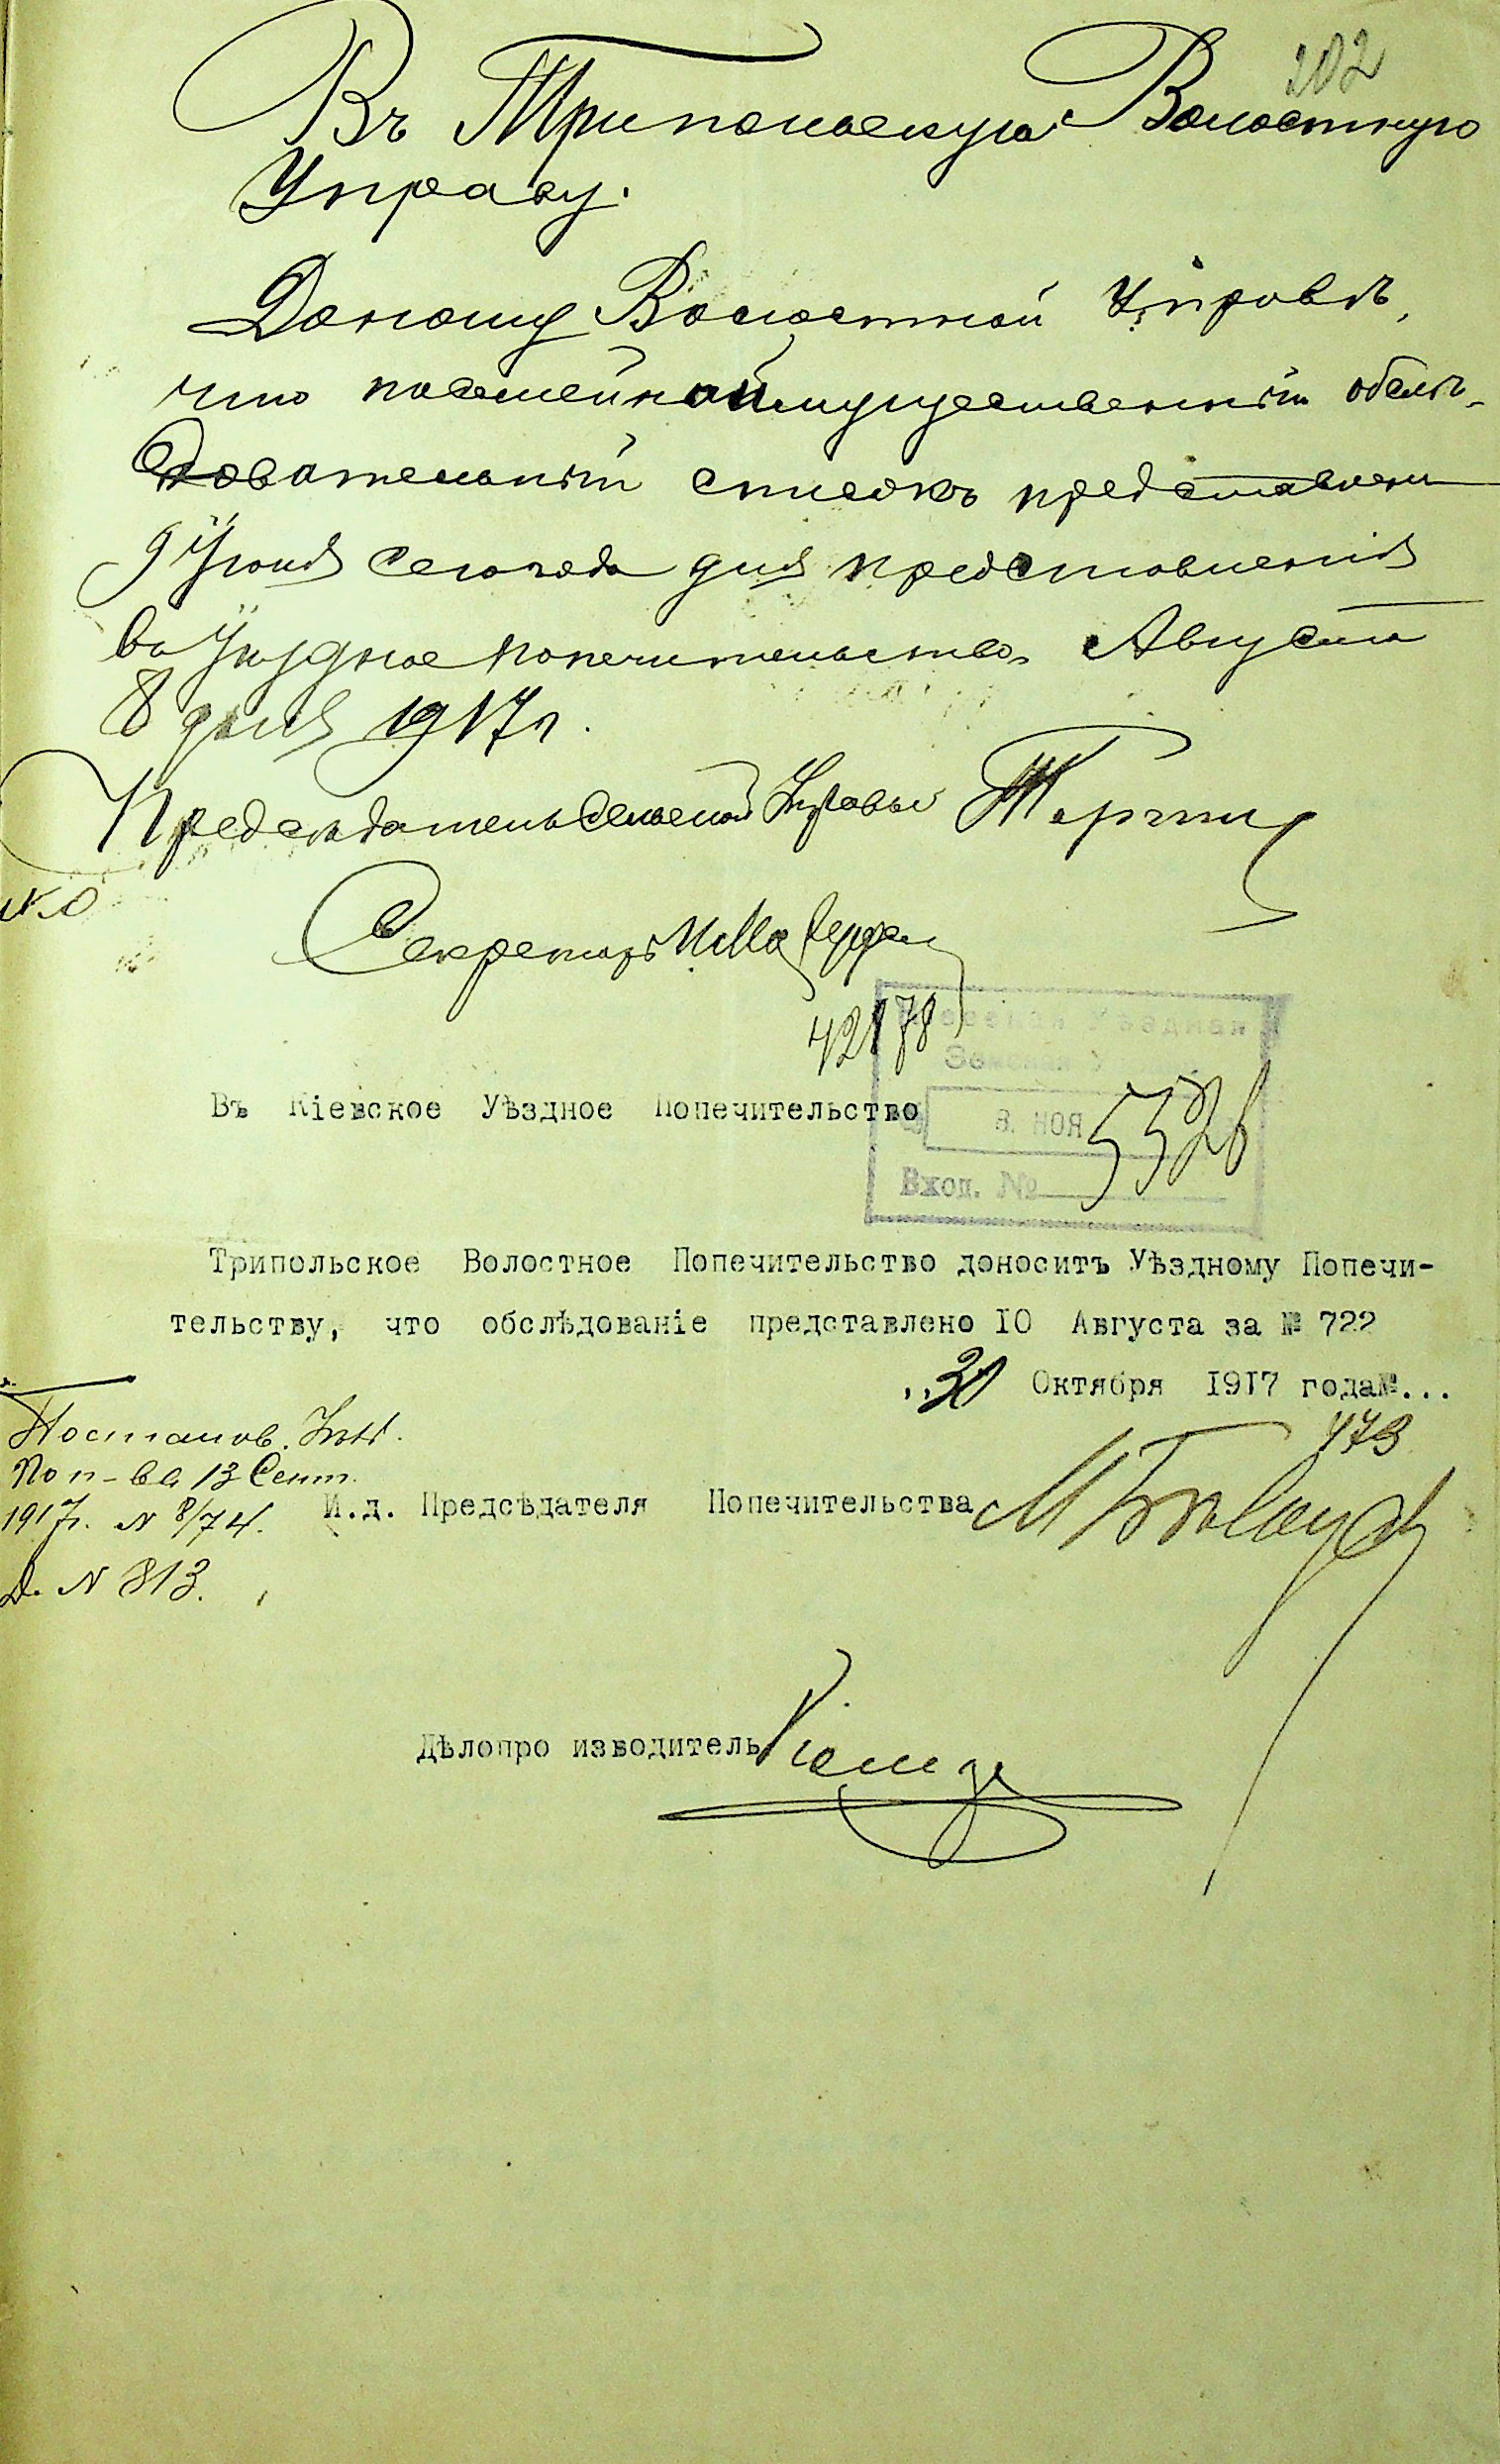 202
Въ Трипольскую Волостную
Управу.
Доношу Волостной Управѣ,
что посемейной имущественній обслѣ-
довательній списокъ представлен
9 Іюня сего года для представленія
во Уѣздное попечительство, Августа
8 дня 1917 г.
Председатель Сельской Управы
Секретарь
42178
Кіевская Уѣздная
Земская
Въ Кіевское Уѣздное Попечительство
8. НОЯ
5526
Вход. №
Трипольское Волостное Попечительство доноситъ Уѣздному Попечи-
тельству, что обслѣдованіе представлено 10 Августа за № 722
30 Октября 1917 года№...
473
Постанов.
Поп-ва 13 Сент.
1917г. N 8/74.
Д. N 813.
И.д. Предсѣдателя Попечительства
Дѣлопро изводитель